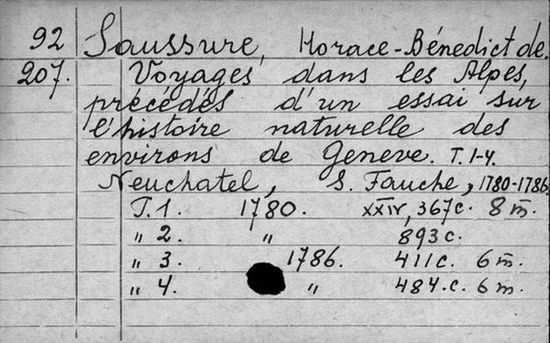 92 Saussure, Horace-Bénedict de.
207. Voyages dans les Alpes,
précédés d'un essai sur
l'histoire naturelle des
environs de Geneve. T. 1-4.
Neuchatel, S. Fauche, 1780-1786.
T. 1. 1780. XXIV, 367 c. 8 m̄.
" 2. " 893 c.
" 3. 1786. 411 c. 6 m̄.
" 4. " 484. c. 6 m̄.